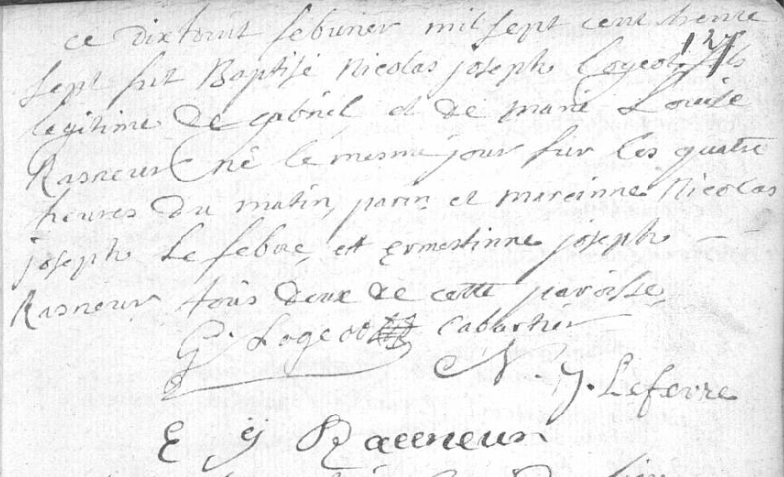 ce dixhuit febvrier mil sept cent trente
127
sept fut Baptisé Nicolas joseph Logeot fils
legitime de gabriel et de marie Louise
Rasneur né le mesme jour sur les quatre
heures du matin parin et mareinne Nicolas
joseph Lefebvre et ernestinne joseph
Rasneur tous deux de cette paroisse
G Logeot Cabartier
N. J. Lefevre
E J Raeeneur